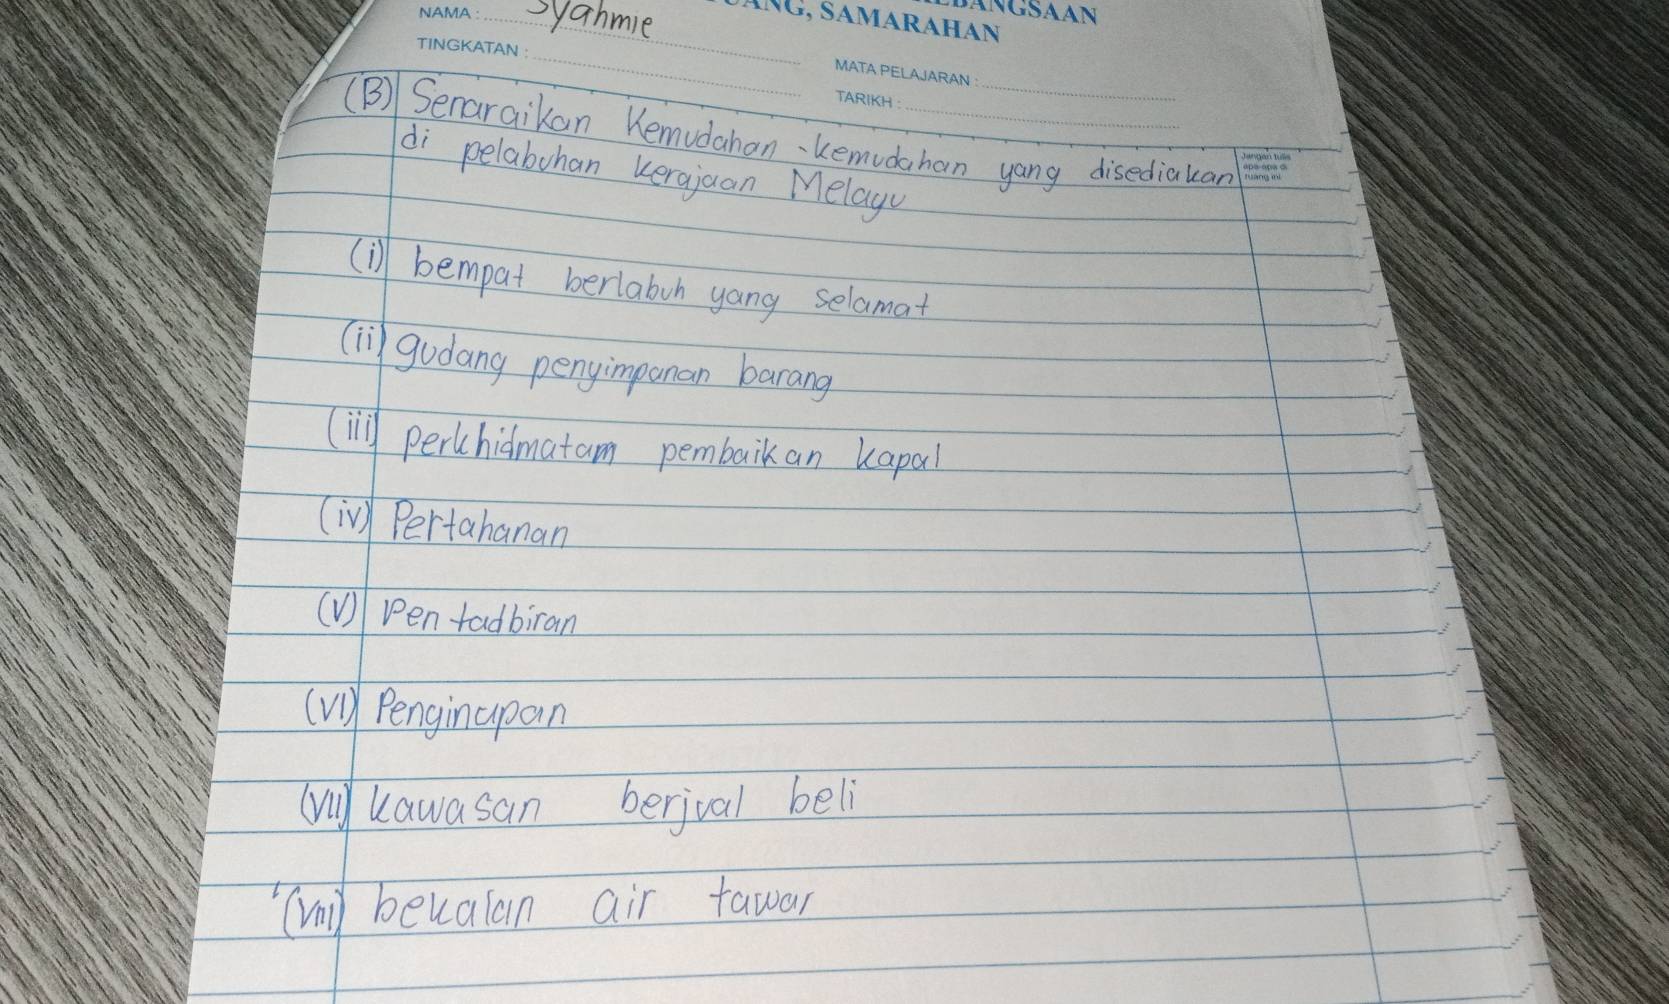 NAMA : Syahmie
SAMARAHAN
TINGKATAN :
MATA PELAJARAN :
TARIKH :
(B) Senaraikan Kemudahan-kemudahan yang disediakan
di pelabuhan kerajaan Melayu
Jangan tulis
apa-apa di
ruang ini
(i) bempat berlabuh yang selamat
(ii) gudang penyimpanan barang
(iii) perkhidmatam pembaikan kapal
(iv) Pertahanan
(V) Pentadbiran
(VI) Penginapan
(VII) kawasan berjual beli
(VIII) bekalan air tawar